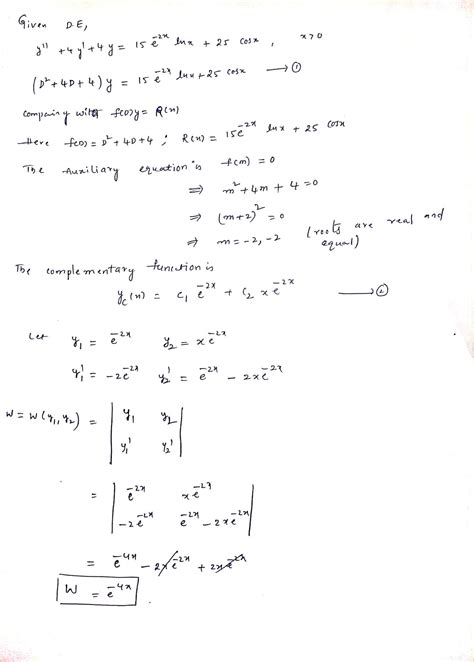 Given D.E,
y'' + 4y' + 4y = 15 e^{-2x} lnx + 25 cosx , x>0
(D² + 4D + 4) y = 15 e^{-2x} lnx + 25 cosx → ①
Comparing with f(D)y = R(x)
Here f(D) = D² + 4D + 4 ; R(x) = 15e^{-2x} lnx + 25 cosx
The Auxiliary equation is f(m) = 0
⇒ m² + 4m + 4 = 0
⇒ (m+2)² = 0
⇒ m = -2, -2 (roots are real and equal)
The complementary function is
y_c(x) = c₁ e^{-2x} + c₂ x e^{-2x} → ②
Let y₁ = e^{-2x} y₂ = x e^{-2x}
y₁' = -2e^{-2x} y₂' = e^{-2x} - 2xe^{-2x}
W = W(y₁, y₂) = | y₁ y₂ |
| y₁' y₂' |
= | e^{-2x} xe^{-2x} |
| -2e^{-2x} e^{-2x} - 2xe^{-2x} |
= e^{-4x} - 2xe^{-2x} + 2xe^{-2x}
W = e^{-4x}